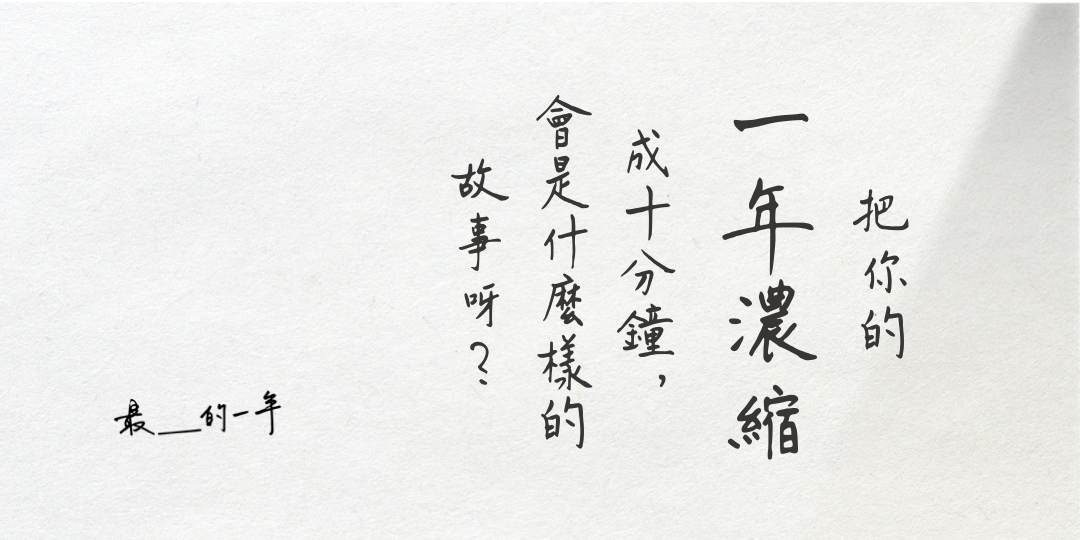 把你的
一年濃縮
成十分鐘，
會是什麼樣的
故事呀？
最__的一年